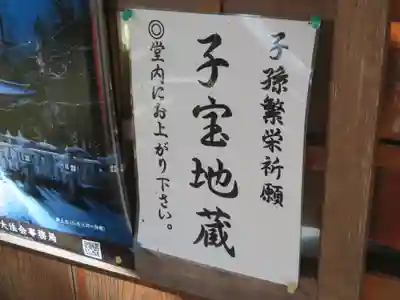 子孫繁栄祈願
子宝地蔵
◎堂内にお上がり下さい。
大法会事務局